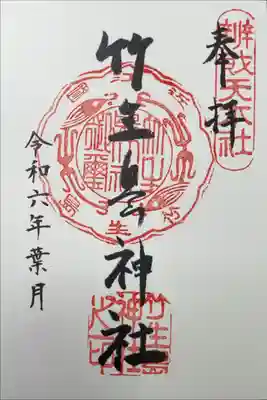 奉拝
辨才天社
竹生島神社
令和六年葉月
竹生島神社之印